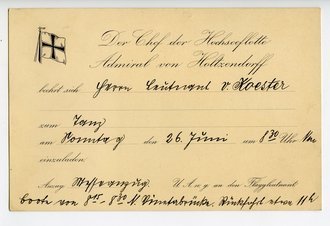 Der Chef der Hochseeflotte
Admiral von Holtzendorff
beehrt sich Herrn Leutnant v. Koester
zum Tanz
am Sonntag den 26. Juni um 8 30 Uhr Nm
einzuladen.
Anzug: Messeanzug. U.A.w.g. an den Flaggleutnant
Boote von 8 15 - 8 30 N. Binetabrücke. Rückfahrt etwa 11 h